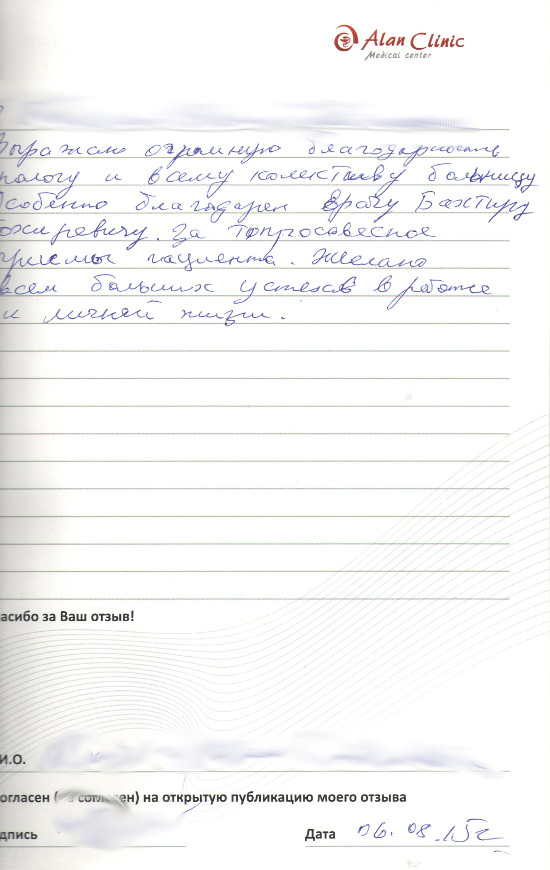 Alan Clinic
Medical center
Выражаю огромную благодарность
рологу и всему колективу больницу
Особенно благодарен врачу Бахтиру
За Топросовесное
приемы пациента. Желаю
всем больших успехов в работе
и личной жизни.
асибо за Ваш отзыв!
И.О.
огласен (не согласен) на открытую публикацию моего отзыва
дпись Дата 06.08.15г